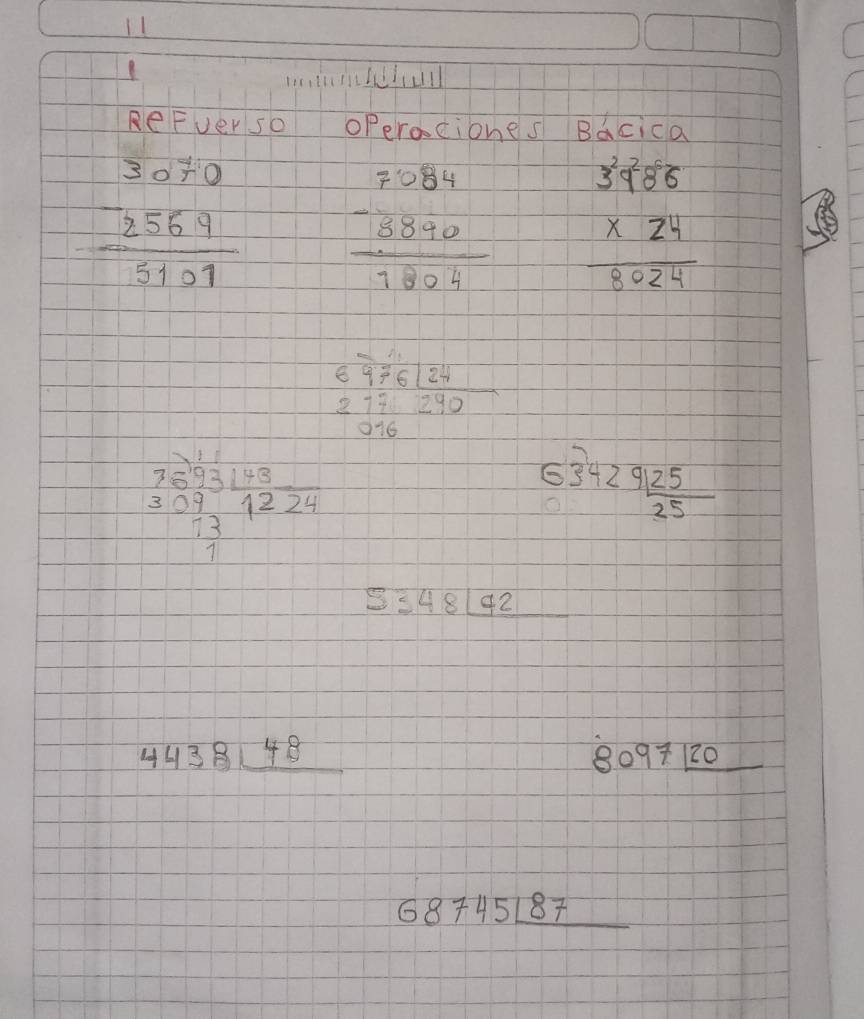 11
1
ReFuerso oPeraciones Bácica
3070 7084 3986
-2569 -8890 x 24
5101 1804 8024
6976 24
217 290
016
7693 43 63429 25
309 1224 25
13
1
5348 92
4438 48 8097 20
68745 87